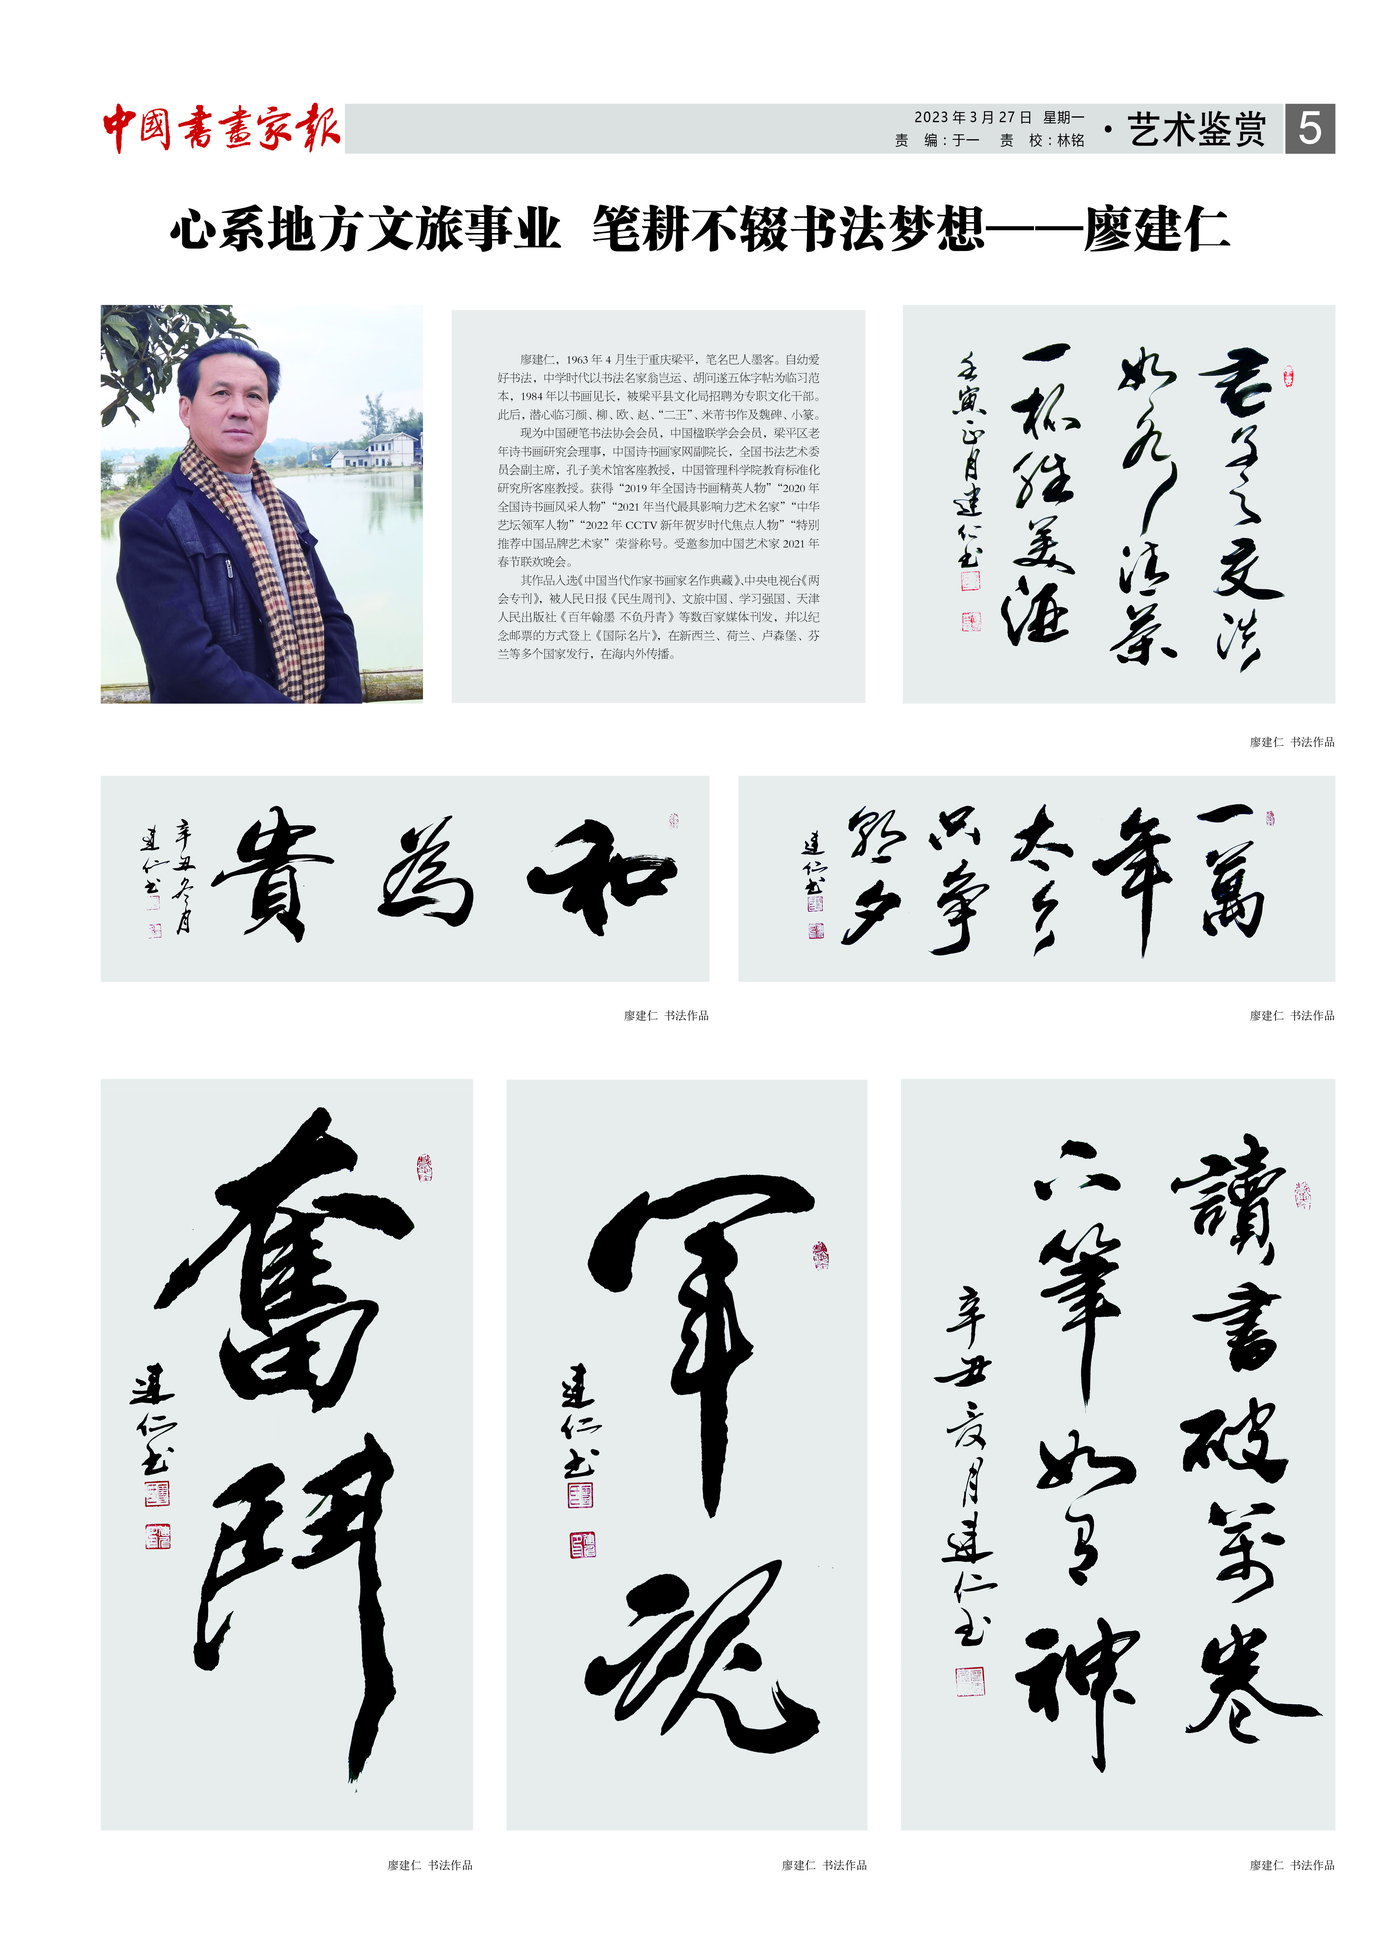 中國書畫家報
2023年3月27日 星期一
责 编：于一 责 校：林铭
·艺术鉴赏
5
心系地方文旅事业 笔耕不辍书法梦想——廖建仁
廖建仁，1963年4月生于重庆梁平，笔名巴人墨客。自幼爱
好书法，中学时代以书法名家翁岂运、胡问遂五体字帖为临习范
本，1984年以书画见长，被梁平县文化局招聘为专职文化干部。
此后，潜心临习颜、柳、欧、赵、“二王”、米芾书作及魏碑、小篆。
现为中国硬笔书法协会会员，中国楹联学会会员，梁平区老
年诗书画研究会理事，中国诗书画家网副院长，全国书法艺术委
员会副主席，孔子美术馆客座教授，中国管理科学院教育标准化
研究所客座教授。获得“2019年全国诗书画精英人物”“2020年
全国诗书画风采人物”“2021年当代最具影响力艺术名家”“中华
艺坛领军人物”“2022年CCTV新年贺岁时代焦点人物”“特别
推荐中国品牌艺术家”荣誉称号。受邀参加中国艺术家2021年
春节联欢晚会。
其作品入选《中国当代作家书画家名作典藏》、中央电视台《两
会专刊》，被人民日报《民生周刊》、文旅中国、学习强国、天津
人民出版社《百年翰墨 不负丹青》等数百家媒体刊发，并以纪
念邮票的方式登上《国际名片》，在新西兰、荷兰、卢森堡、芬
兰等多个国家发行，在海内外传播。
君子之交淡
如水清茶
一杯胜美酒
壬寅正月建仁书
廖建仁 书法作品
和為貴
辛丑冬月
建仁书
廖建仁 书法作品
一萬
年
太久
只争
朝夕
建仁书
廖建仁 书法作品
奮鬥
建仁书
廖建仁 书法作品
军魂
建仁书
廖建仁 书法作品
讀書破萬卷
下筆如有神
辛丑夏月建仁书
廖建仁 书法作品